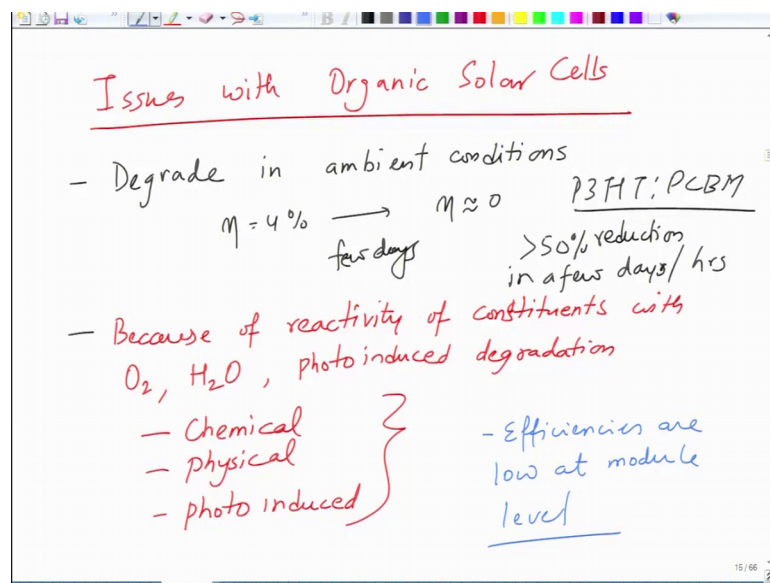 Issues with Organic Solar Cells
- Degrade in ambient conditions
η = 4% → η ≈ 0
few days
P3HT:PCBM
>50% reduction
in a few days/hrs
- Because of reactivity of constituents with
O₂, H₂O, photo induced degradation
- Chemical
- Physical
- photo induced
- Efficiencies are
low at module
level
15 / 66